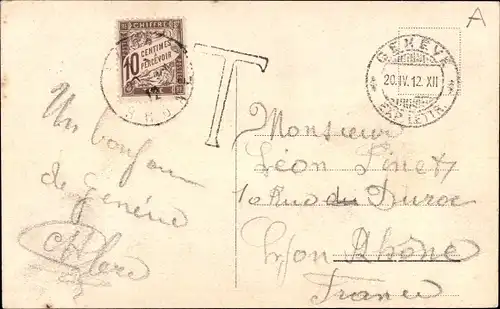 A
CHIFFRE
10 CENTIMES
À PERCEVOIR
T
GENÈVE
20.IV.12. XII
EXP. LETTR.
Un bonjour
de Genève
Monsieur
Léon Pinet
10 Rue du Duroc
Lyon Rhône
France